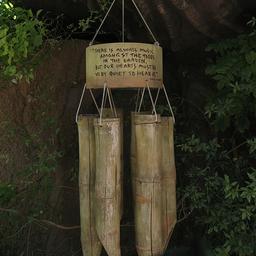 "THERE IS ALWAYS MUSIC
AMONGST THE TREES
IN THE GARDEN,
BUT OUR HEARTS MUST BE
VERY QUIET TO HEAR IT"